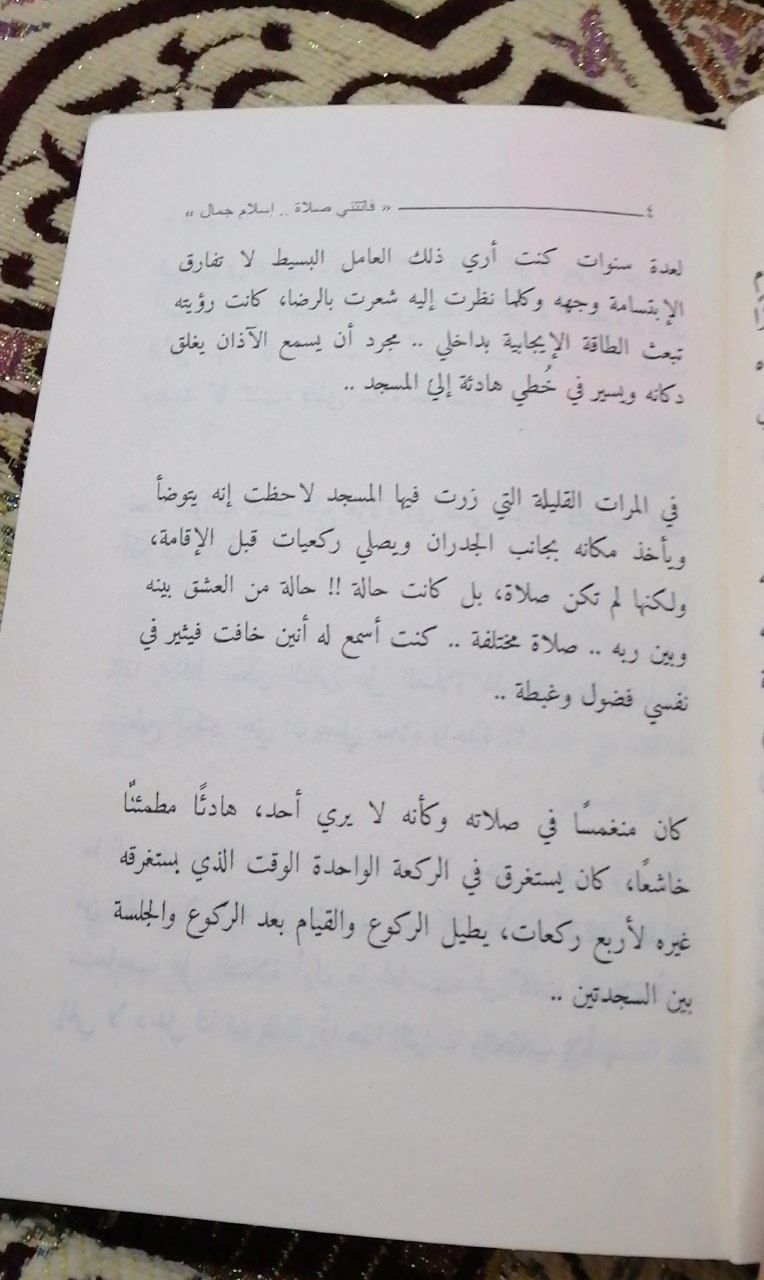 ٤ « فاتتني صلاة .. إسلام جمال »
لعدة سنوات كنت أري ذلك العامل البسيط لا تفارق
الإبتسامة وجهه وكلما نظرت إليه شعرت بالرضا، كانت رؤيته
تبعث الطاقة الإيجابية بداخلي .. مجرد أن يسمع الآذان يغلق
دكانه ويسير في خُطي هادئة إلي المسجد ..
في المرات القليلة التي زرت فيها المسجد لاحظت إنه يتوضأ
ويأخذ مكانه بجانب الجدران ويصلي ركعيات قبل الإقامة،
ولكنها لم تكن صلاة، بل كانت حالة !! حالة من العشق بينه
وبين ربه .. صلاة مختلفة .. كنت أسمع له أنين خافت فيثير في
نفسي فضول وغبطة ..
كان منغمسًا في صلاته وكأنه لا يري أحد، هادئًا مطمئنًّا
خاشعًا، كان يستغرق في الركعة الواحدة الوقت الذي يستغرقه
غيره لأربع ركعات، يطيل الركوع والقيام بعد الركوع والجلسة
بين السجدتين ..